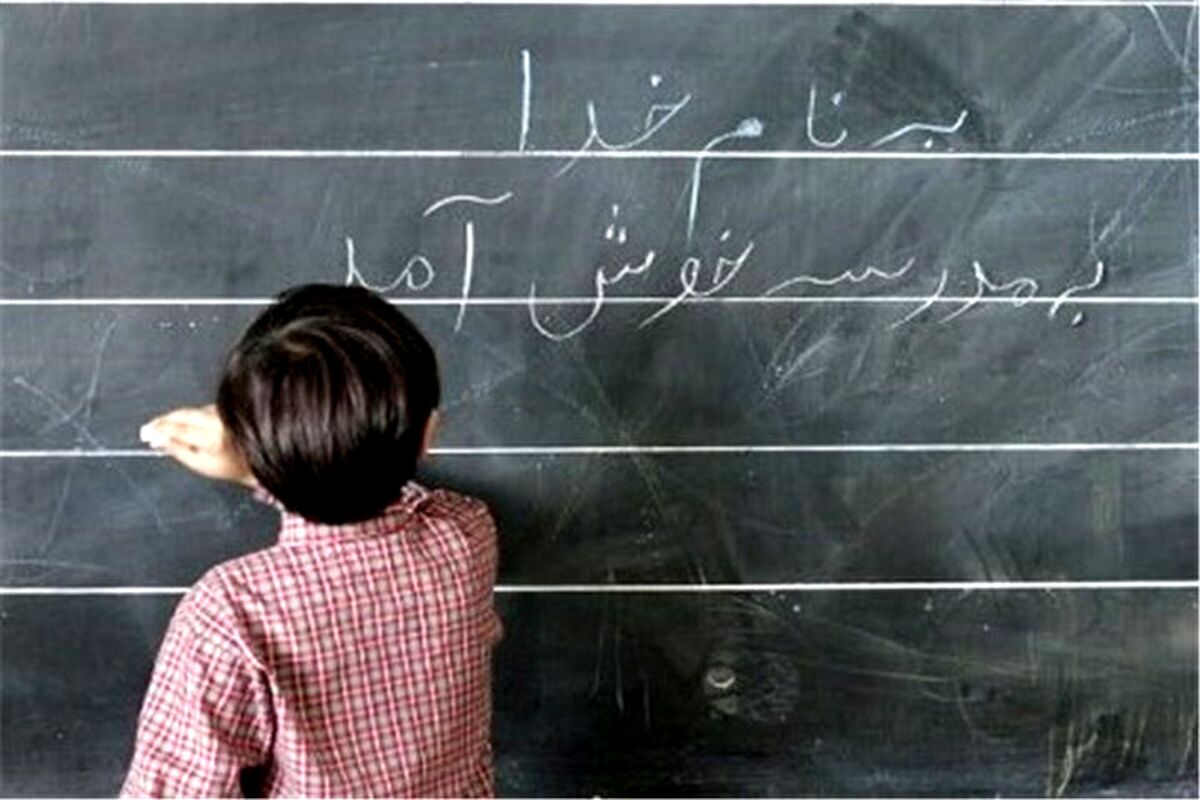 به نام خدا
به مدرسه خوش آمد